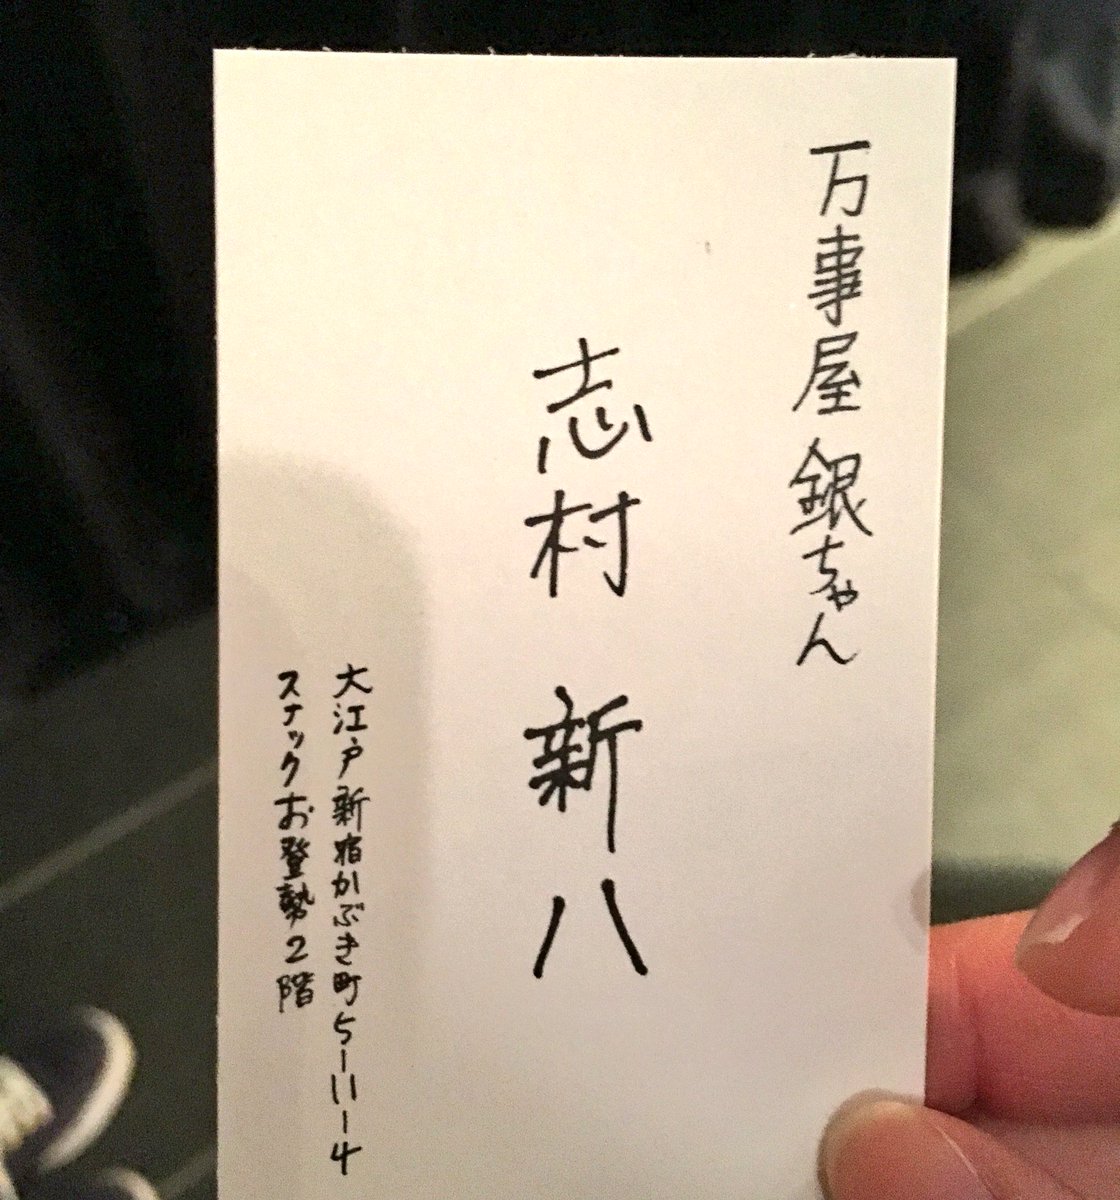 万事屋 銀ちゃん
志村 新八
大江戸新宿かぶき町5-11-4
スナックお登勢2階